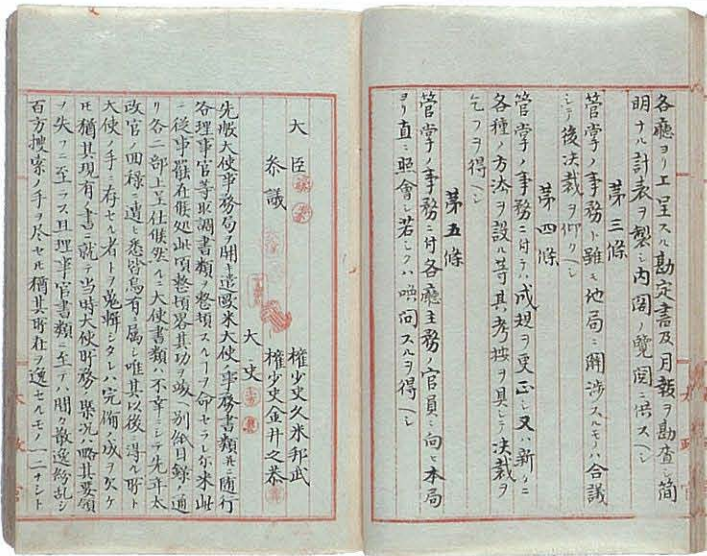 各廳ヨリ上呈スル勘定書及月報ヲ勘査シ簡
明ナル計表ヲ製シ内閣ノ覽閲ニ供スヘシ
第三條
管掌ノ事務ト雖モ他局ニ關渉スルモノハ合議
シテ後決裁ヲ仰クヘシ
第四條
管掌ノ事務ニ付テハ成規ヲ更正シ又ハ新タニ
各種ノ方法ヲ設ル等其考按ヲ具シテ決裁ヲ
乞フヲ得ヘシ
第五條
管掌ノ事務ニ付各廳主務ノ官員ニ向ヒ本局
ヨリ直ニ照會シ若シクハ喚問スルヲ得ヘシ
太政官
大臣
参議
權少史久米邦武
權少史金井之恭
大史
先般大使事務局ヲ開キ遣歐米大使ノ事務書類并ニ隨行
各理事官等取調書類ヲ整頓スルヿヲ命セラレ尓来此
ニ從事罷在候処此頃整頓畧其功ヲ竣ヘ別紙目録ノ通
リ各二部上呈仕候然ルニ大使書類ハ不幸ニシテ先年太
政官ノ回禄ニ遭ヒ悉皆烏有ニ属シ唯其以後ニ得ル所ト
大使ノ手ニ存セル者トヲ蒐輯シタレハ完備ノ成ヲ欠ケ
𪜈猶其現有ノ書ニ就テ当時大使所務ノ槩况ハ略其要領
ヲ失フニ至ラス且理事官書類ニ至テハ間々散逸紛乱シ
百方捜索ノ手ヲ尽セ𪜈猶其所在ヲ逸セルモノ一二ナシト
太政官